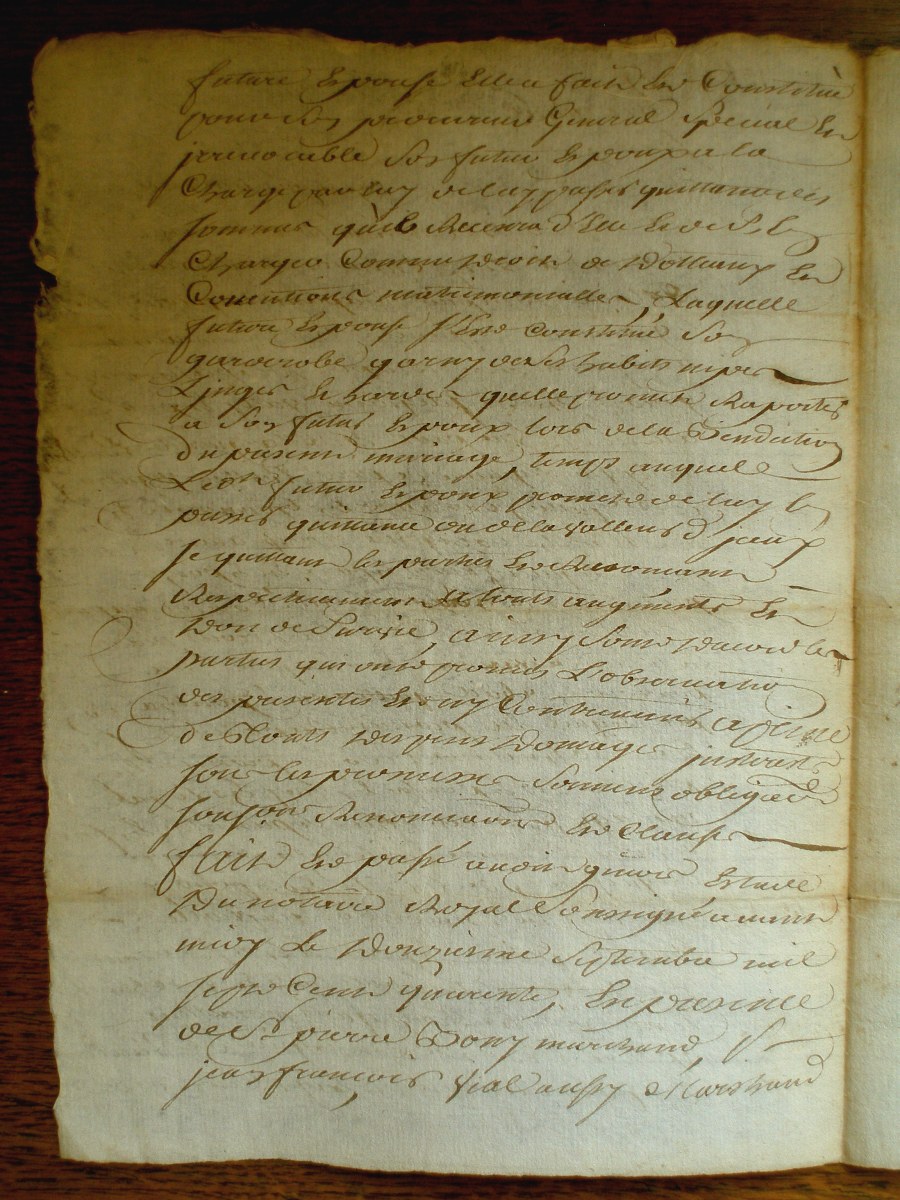 future Epouse Elle a fait Et Constitué
pour son procureur General Special Et
irrevocable son futur Epoux a la
Charge par luy de luy passer quittance des
sommes qu'il Recevra d'Elle Et de les luy
Charger Comme droit de dottaux Et
Conventions matrimonialles, Laquelle
future Epouse s'Est Constitué son
garderobe garny de ses habits nipes
Linges Et hardes quelle promet Raporter
a son futur Epoux lors de la Benediction
du present mariage, temps auquel
Led.t futur Epoux promet de luy En
passer quittance ou de la valleur d'iceux
se quittant les parties Et Renonceant
Respectivement a touts augments Et
don de survie, ainsy sont d'acord les
parties qui ont promis L'observation
des presentes Et n'y Contrevenir a peine
de Touts depens Domages interests
sous les promesses soumis obliga.ons
Renonciaons Et Clauses
fait Et passé audit Etude
Du notaire Royal soussigné avant
midy Le Douzieme Septembre mil
sept Cent quarante, En presence
de S.r pierre Bony marchand, S.r
jean francois Vial aussy Marchand